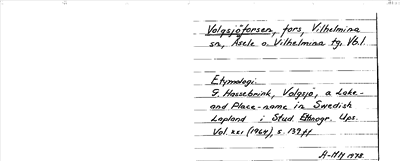 Volgsjöforsen, fors, Vilhelmina
sn, Åsele o. Vilhelmina tg, Vb.l.
Etymologi:
G. Hasselbrink, Volgsjö, a Lake-
and Place-name in Swedish
Lapland i Stud. Ethnogr. Ups.
Vol. XXI (1964), s. 139ff
1975